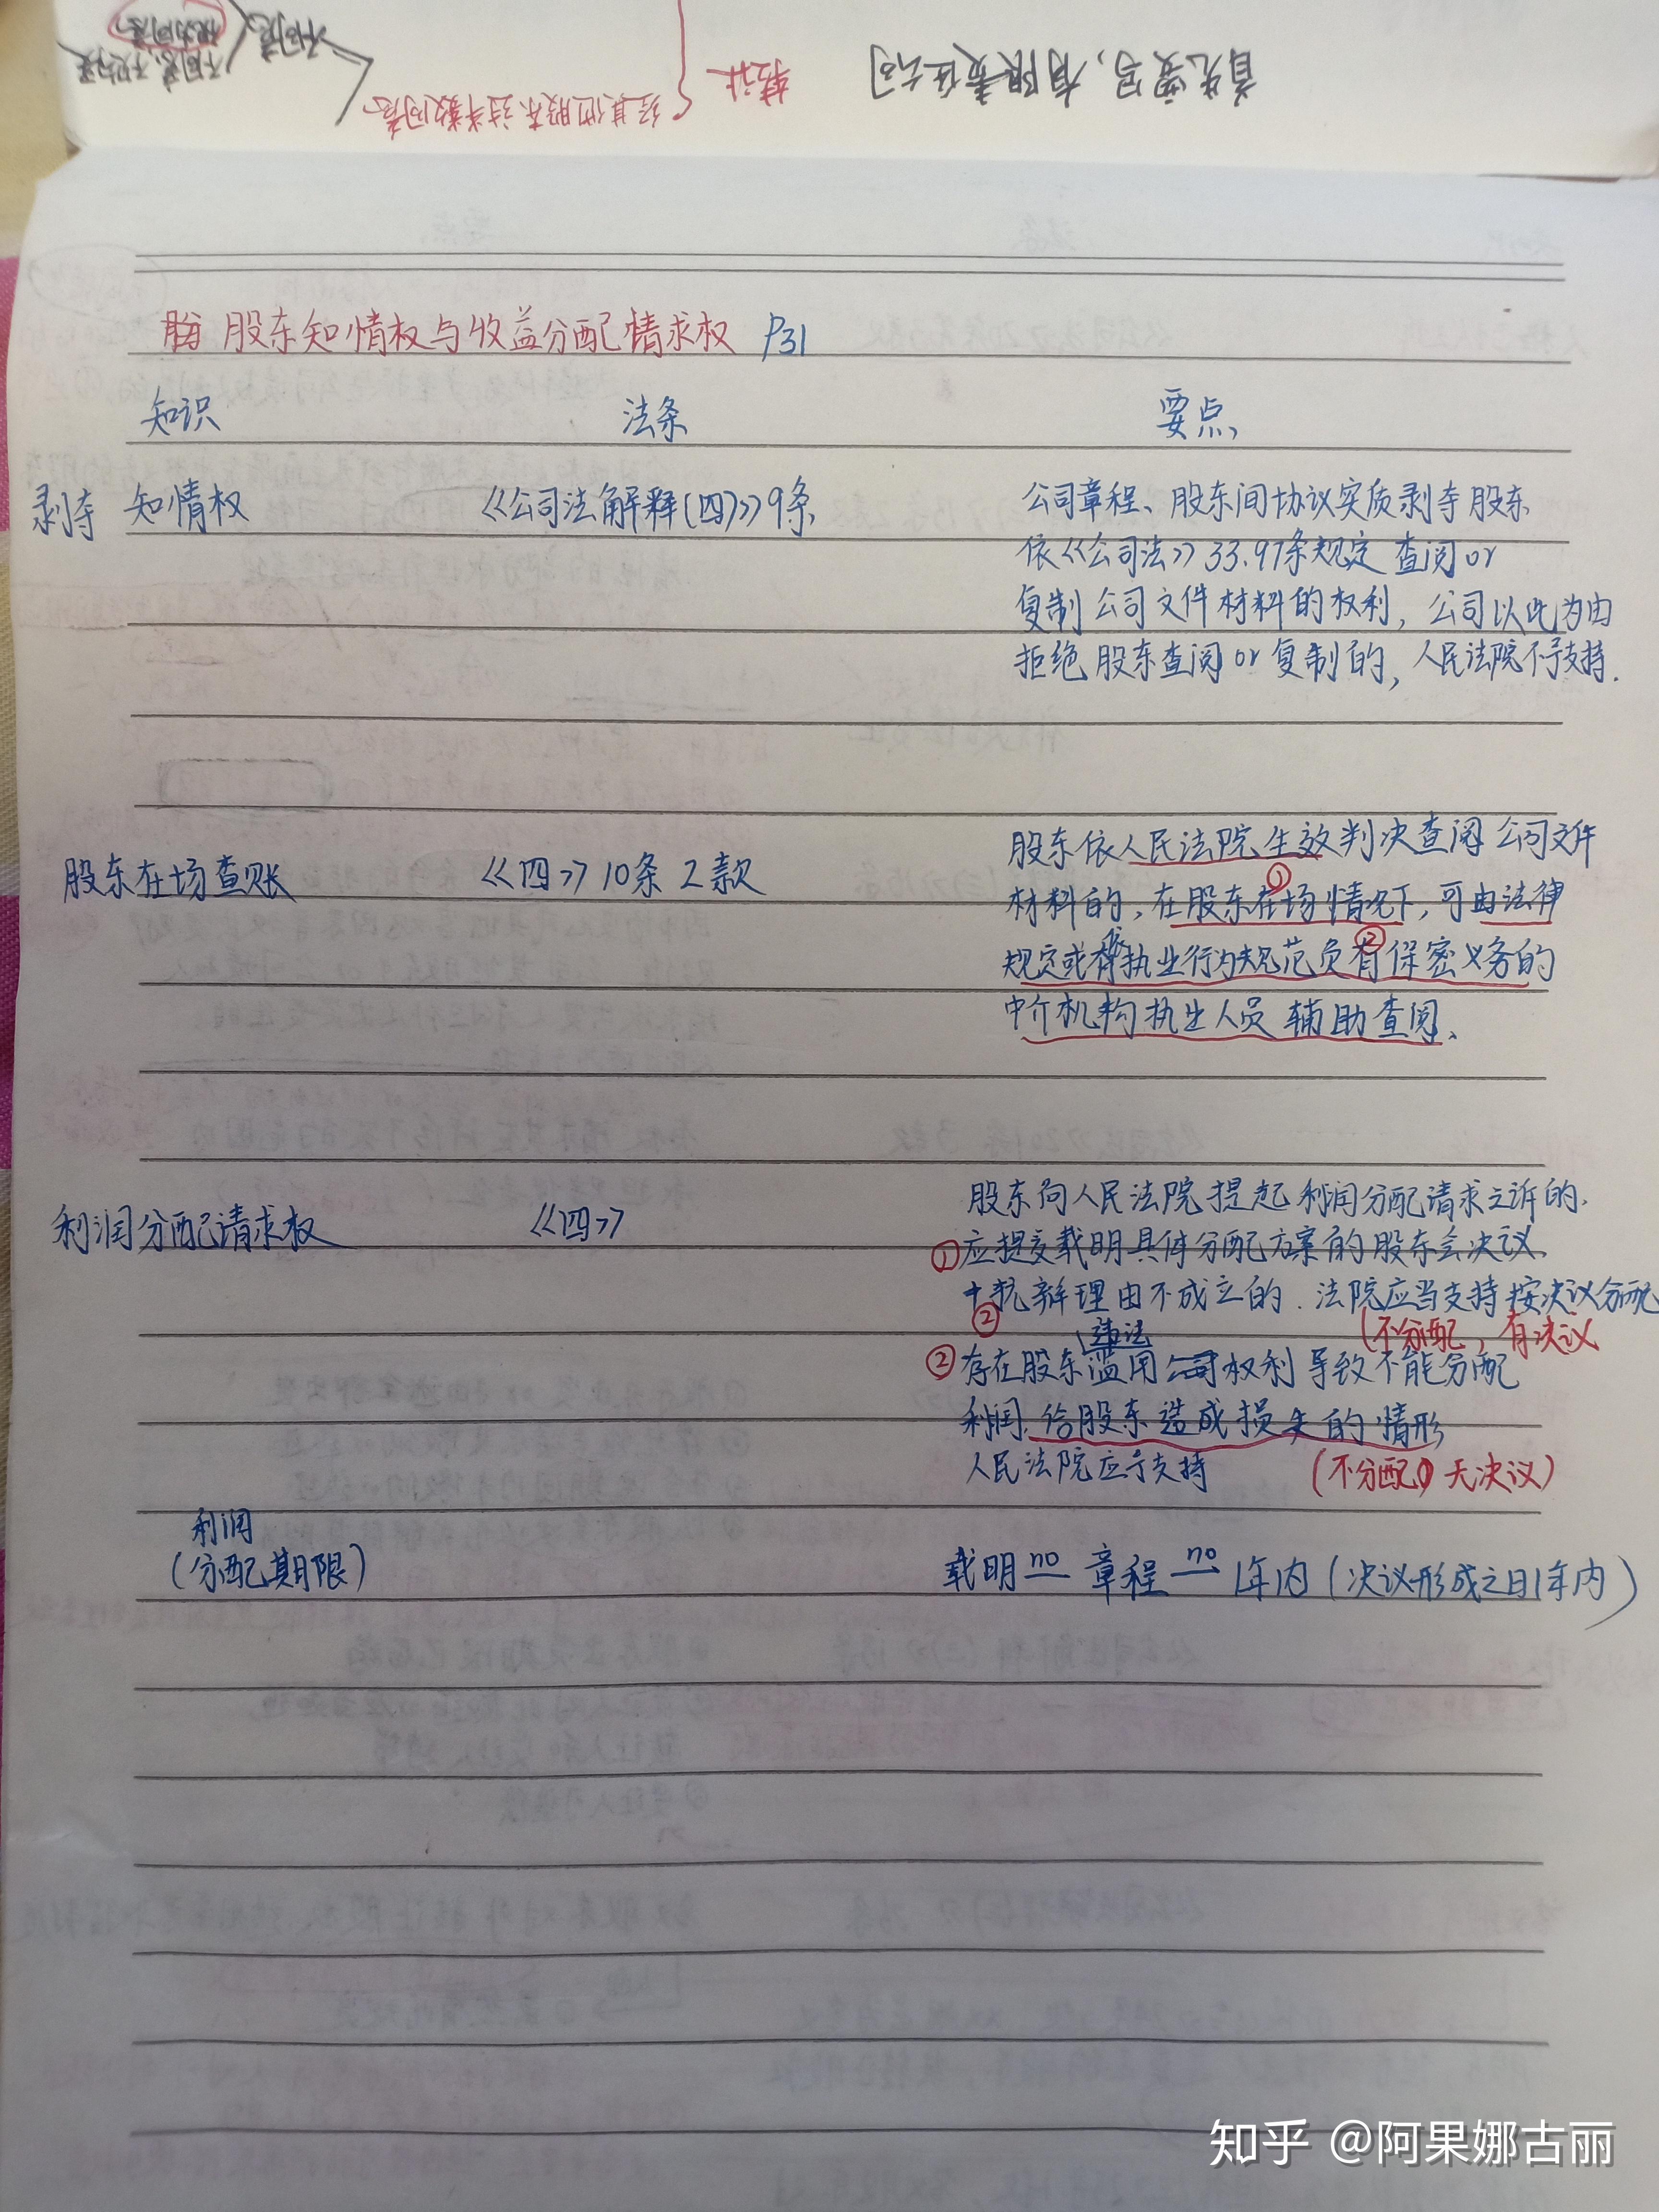 首先要写，有限责任公司
转让
经其他股东过半数同意
不同意
不同意，不购买
视为同意
股东知情权与收益分配请求权 P31
知识 法条 要点
剥夺 知情权 《公司法解释(四)》9条 公司章程、股东间协议实质剥夺股东
依《公司法》33.97条规定 查阅or
复制公司文件材料的权利，公司以此为由
拒绝股东查阅or复制的，人民法院不予支持.
股东在场查账 《四》10条 2款 股东依人民法院生效判决查阅公司文件
材料的，在股东在场情况下，可由法律
规定或依执业行为规范负有保密义务的
中介机构执业人员辅助查阅、
① ②
利润分配请求权 《四》 股东向人民法院提起利润分配请求之诉的.
①应提交载明具体分配方案的股东会决议.
+抗辩理由不成立的.法院应当支持按决议分配
② (不分配，有决议
②存在股东违法滥用权利导致不能分配
利润.给股东造成损失的情形
人民法院应予支持 (不分配，无决议)
利润
(分配期限) 载明 no 章程 no 1年内(决议形成之日1年内)
知乎 @阿果娜古丽